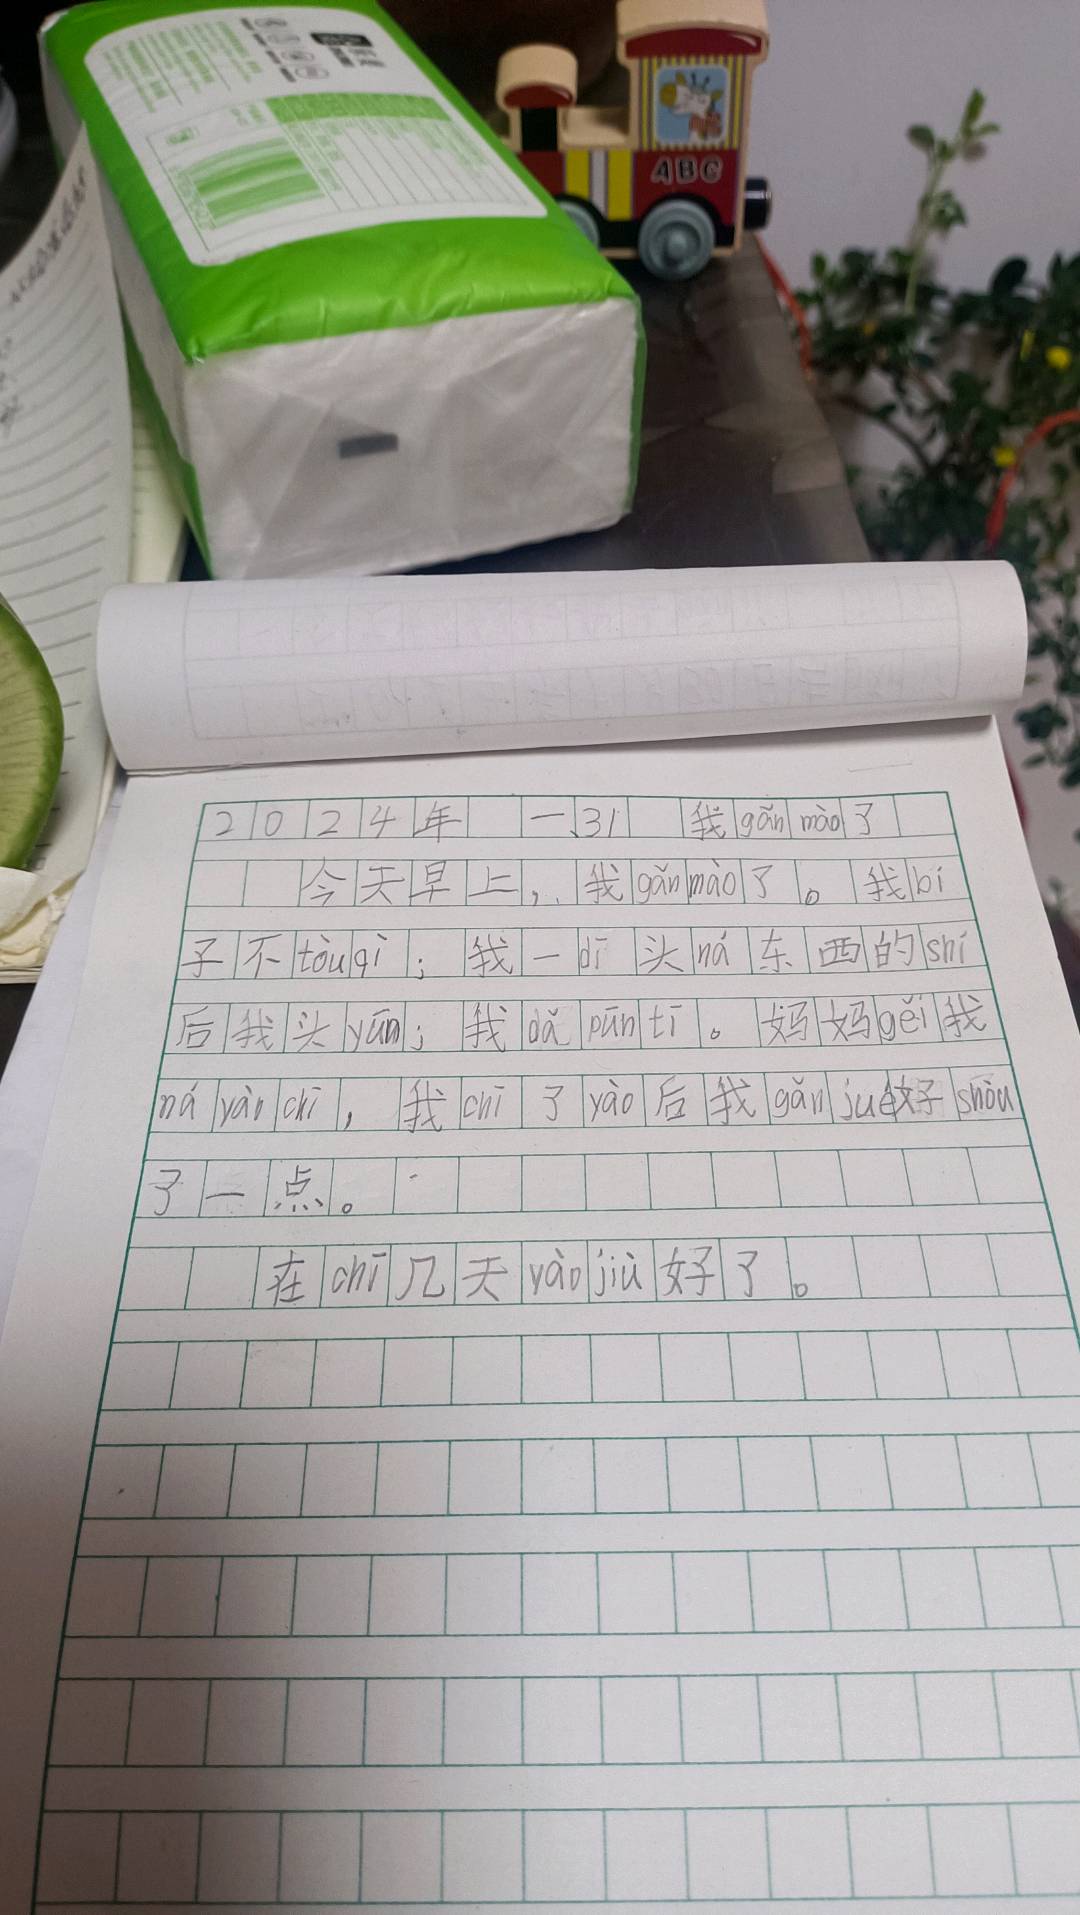 ABC
2024年 一、31 我gǎn mào了
今天早上，我gǎn mào了。我bí
子不tòu qì；我一dī头ná东西的shí
后我头yūn；我dǎ pūn tī。妈妈gěi我
ná yào chī，我chī了yào后我gǎn jué好shòu
了一点。
在chī几天yào jiù好了。